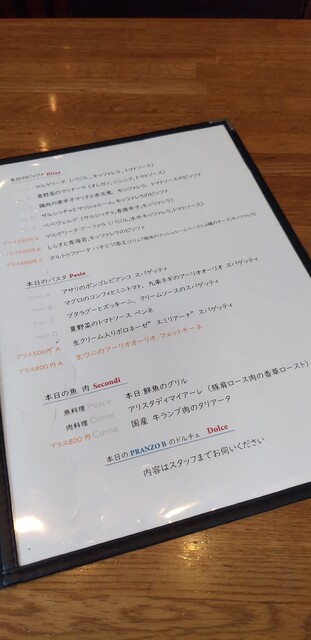 本日のピッツァ Pizza
マルゲリータ (バジル、モッツァレラ、トマトソース)
夏野菜のマリナーラ (オレガノ、ニンニク、トマトソース)
鶏肉の唐辛子マリネと赤玉葱、モッツァレラ、トマトソースのピッツァ
サルシッチャとマッシュルーム、モッツァレラのピッツァ
ペペヴェルデ (サルシッチャ、青唐辛子、モッツァレラ)
マルゲリータ ブーファラ (バジル、水牛モッツァレラ、トマトソース)
しらすと青海苔、モッツァレラのピッツァ
タルトゥファータ・ハチミツ添え
本日のパスタ Pasta
アサリのボンゴレビアンコ スパゲッティ
マグロのコンフィとミニトマト、九条ネギのアーリオオーリオ スパゲッティ
ブタラグーとズッキーニ、クリームソースのスパゲッティ
夏野菜のトマトソース ペンネ
プラス500円 A 生クリーム入りボロネーゼ" エミリアーナ" スパゲッティ
プラス800円 A 生ウニのアーリオオーリオ フェットチーネ
本日の魚 肉 Secondi
魚料理 Pesce 本日 鮮魚のグリル
肉料理 Carne アリスタディマイアーレ (豚肩ロース肉の香草ロースト)
プラス800円 Carne 国産 牛ランプ肉のタリアータ
本日の PRANZO B のドルチェ Dolce
内容はスタッフまでお伺いください